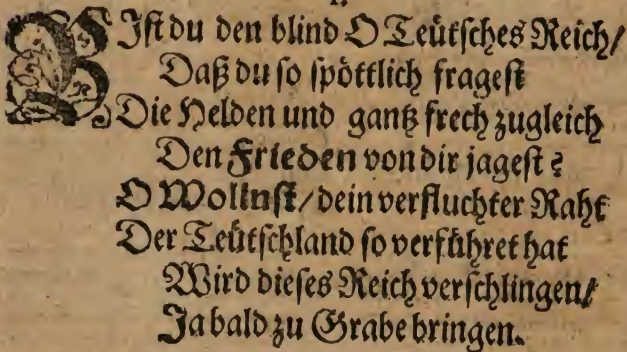 1.
BIſt du den blind O Teütſches Reich/
Daß du ſo ſpöttlich frageſt
Die Helden und gantz frech zugleich
Den Frieden von dir jageſt?
O Wolluſt/ dein verfluchter Raht
Der Teütſchland ſo verführet hat
Wird dieſes Reich verſchlingen/
Ja bald zu Grabe bringen.